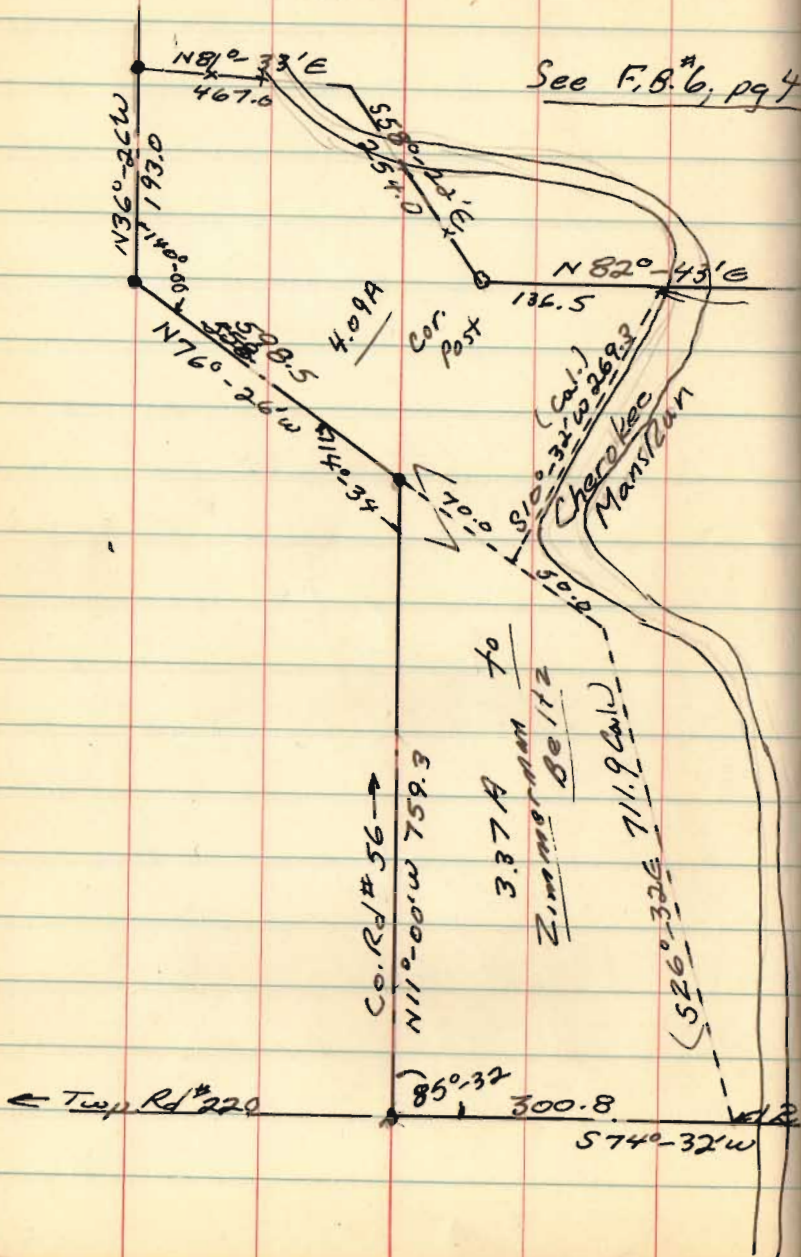 See F.B.#6, pg 4
N81°-33'E
467.0
S58°-22'E
254.0
N36°-26W
193.0
140°-00'
N 82°-43'E
136.5
4.09A
Cor.
Post
598.5
N76°-26'W
114°-34
(Cal.)
S10°-32'W 269.3
Cherokee
Mans Run
70.0
50.0
3.37 A
Zimmerman to
Beltz
Co. Rd #56 →
N11°-00'W 759.3
711.9 Cal.
(S26°-32E
← Twp Rd #220
85°-32
300.8
S74°-32'W